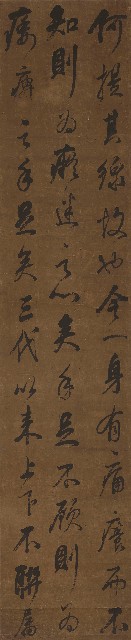 何提其綱攸也今一身有痛癢而不
知則為痴迷之心矣手足不顧則為
痿痺之手足矣三代以来上下不聯屬